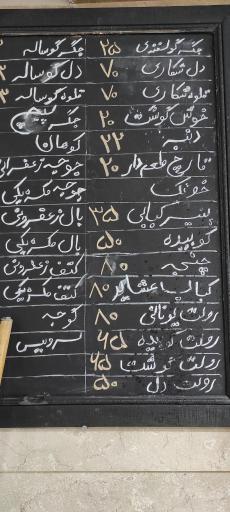 جگر گوسفندی ۲۵ جگر گوساله
دل شکاری ۷۰ دل گوساله
قلوه شکاری ۷۰ قلوه گوساله
خوش گوشت ۲۰ جگر پیچ
دنبه ۲۲ کوهان
قارچ طعم دار ۲۰ جوجه زعفرانی
خوئک جوجه مکزیکی
پنیر کبابی ۳۵ بال زعفرونی
کوبیده ۵۰ بال مکزیکی
چنجه ۸۰ کتف زعفرونی
کباب عشایر ۸۰ کتف مکزیکی
رولت یونانی ۸۰ گوجه
رولت کوبیده ۴۵ سرویس
رولت گوشت ۶۵
رولت دل ۵۰